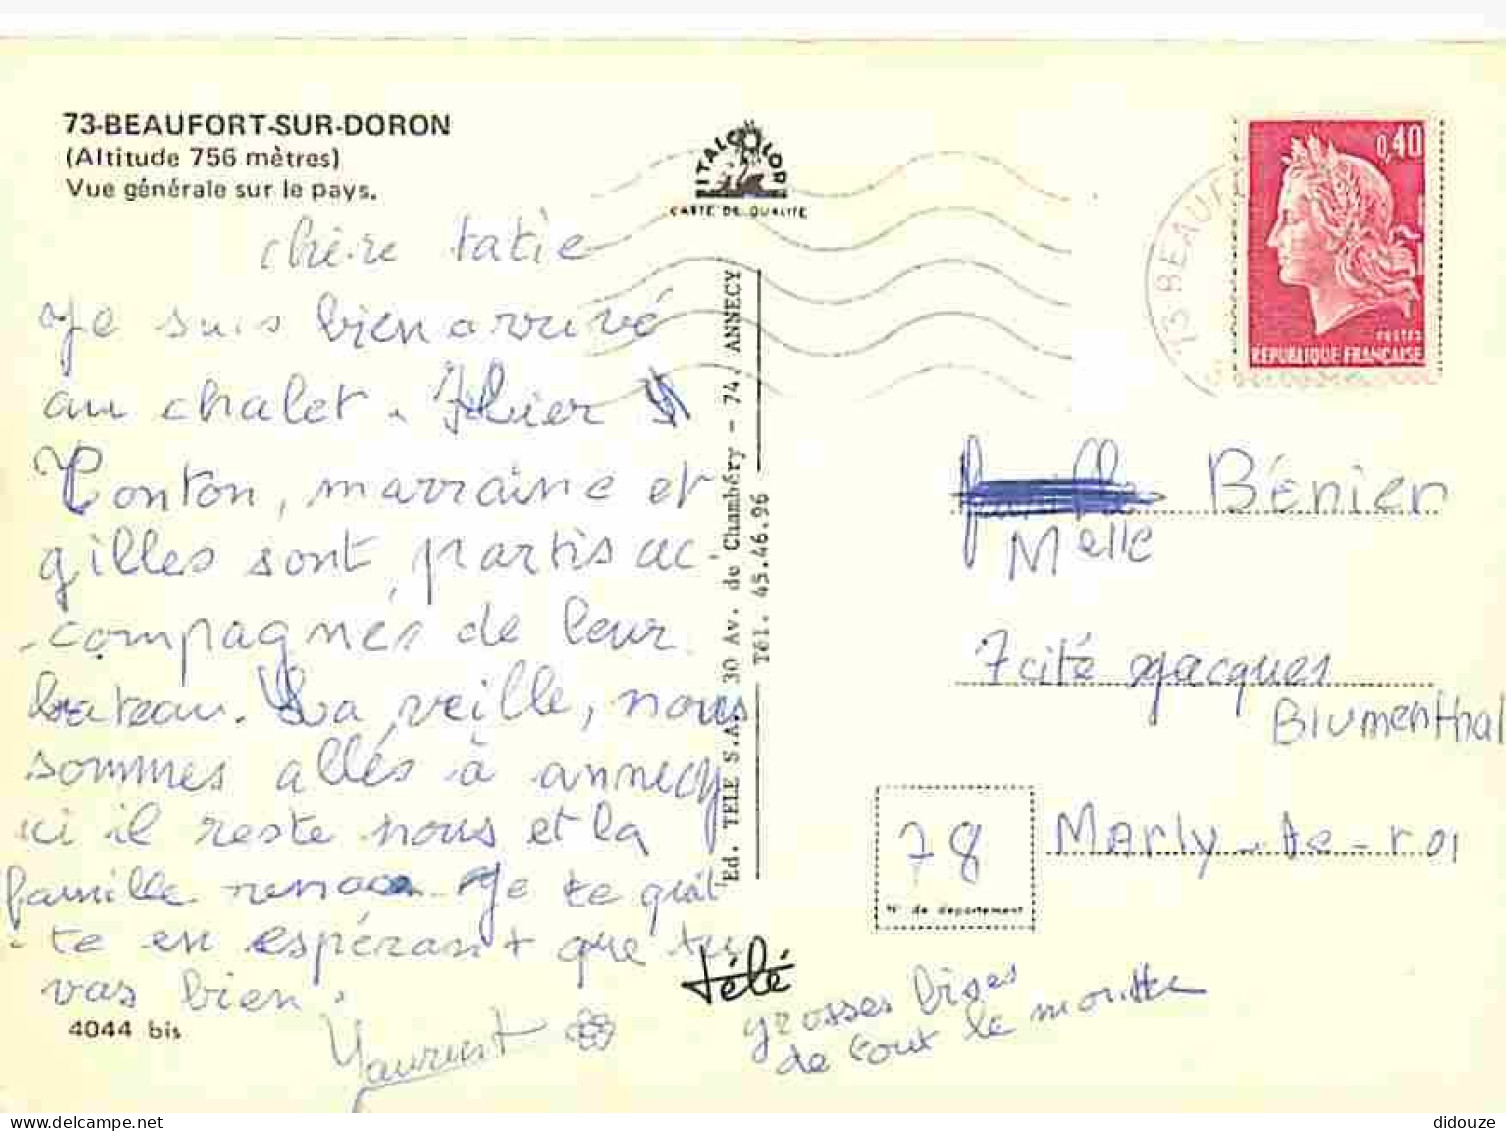 73-BEAUFORT-SUR-DORON
(Altitude 756 mètres)
Vue générale sur le pays.
ITALCOLOR
CARTE DE QUALITE
0,40
POSTES
REPUBLIQUE FRANÇAISE
73 BEAUF
chère tatie
Je suis bien arrivé
au chalet. Hier
Tonton, marraine et
gilles sont partis ac
compagnés de leur
bateau. La veille, nous
sommes allés à annecy
ici il reste nous et la
famille renaca. Je te quit
te en espérant que tu
vas bien.
4044 bis
grosses bises
de tout le monde
Ed. TELE S.A. 30 Av. de Chambéry - 74. ANNECY
Tél. 45.46.96
télé
Bénier
Melle
7 cité Jacques
Blumenthal
78
N° de département
Marly-le-roi
didouze
delcampe.net